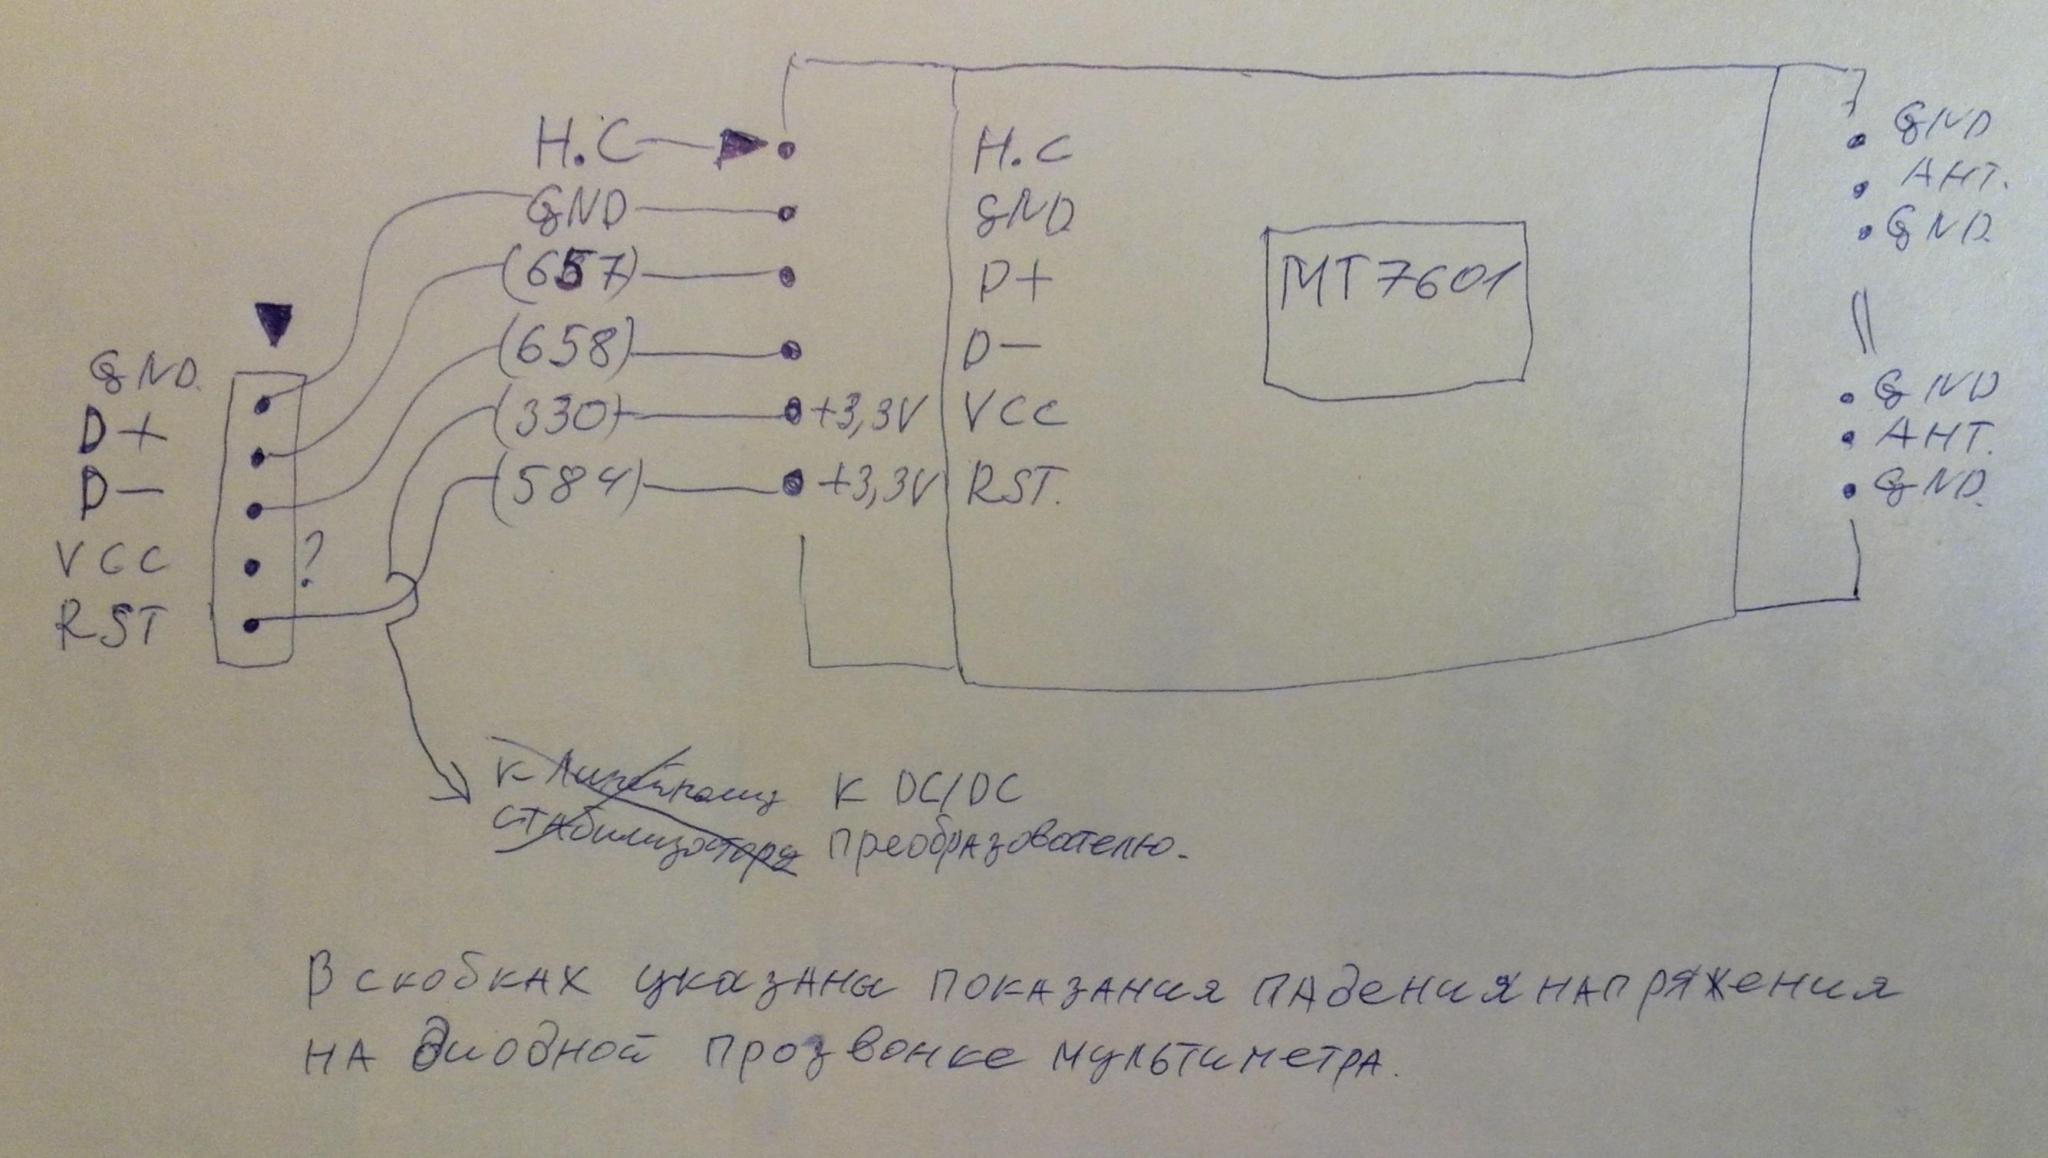 Н.С
GND
(657)
(658)
(330)
(584)
+3,3V
+3,3V
Н.С
GND
D+
D-
VCC
RST.
MT7601
GND
АНТ.
GND.
GND
АНТ.
GND.
GND.
D+
D-
VCC
RST
?
к линейному
стабилизатору
к DC/DC
преобразователю.
В скобках указаны показания падения напряжения
на диодной прозвонке мультиметра.